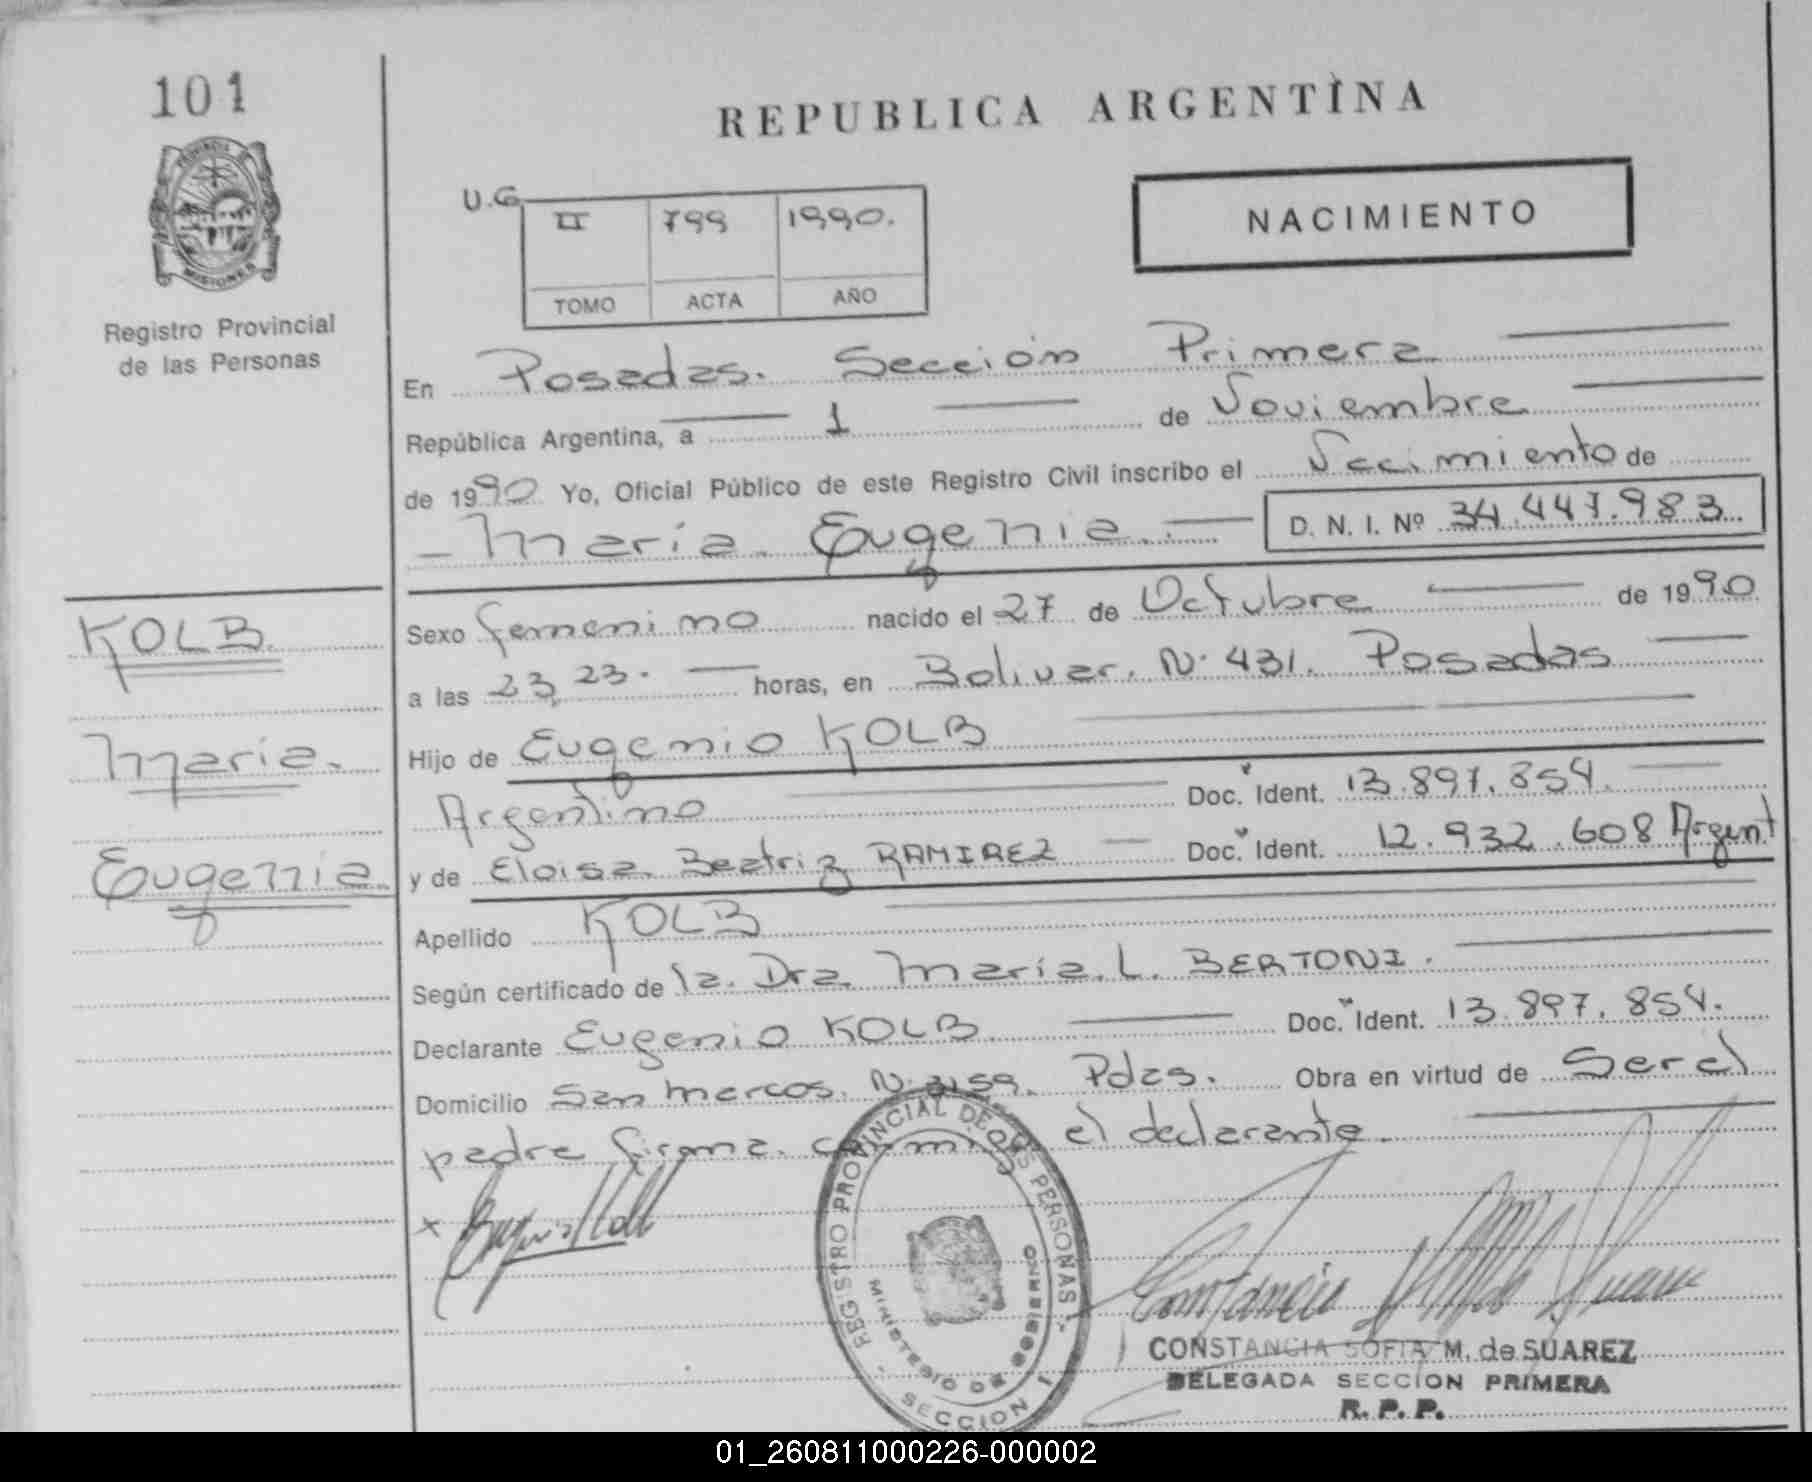 101
PROVINCIA DE
MISIONES
Registro Provincial
de las Personas
REPUBLICA ARGENTINA
U.G
II 799 1990.
TOMO ACTA AÑO
NACIMIENTO
En Posadas. Sección Primera
República Argentina, a 1 de Noviembre
de 1990 Yo, Oficial Público de este Registro Civil inscribo el Nacimiento de
María Eugenia. D. N. I. Nº 34.447.983
KOLB
María.
Eugenia
Sexo femenino nacido el 27 de Octubre de 1990
a las 23,23. horas, en Bolivar. Nº 431. Posadas
Hijo de Eugenio KOLB
Argentino Doc. Ident. 13.897.854.
y de Eloisa Beatriz RAMIREZ Doc. Ident. 12.932.608 Argent
Apellido KOLB
Según certificado de la. Dra. María. L. BERTONI.
Declarante Eugenio KOLB Doc. Ident. 13.897.854.
Domicilio San Marcos. Nº 3159. Pdas. Obra en virtud de Ser el
padre firma conmigo el declarante.
x
REGISTRO PROVINCIAL DE LAS PERSONAS
MINISTERIO DE GOBIERNO
SECCION 1
CONSTANCIA SOFIA M. de SUAREZ
DELEGADA SECCION PRIMERA
R. P. P.
01_260811000226-000002